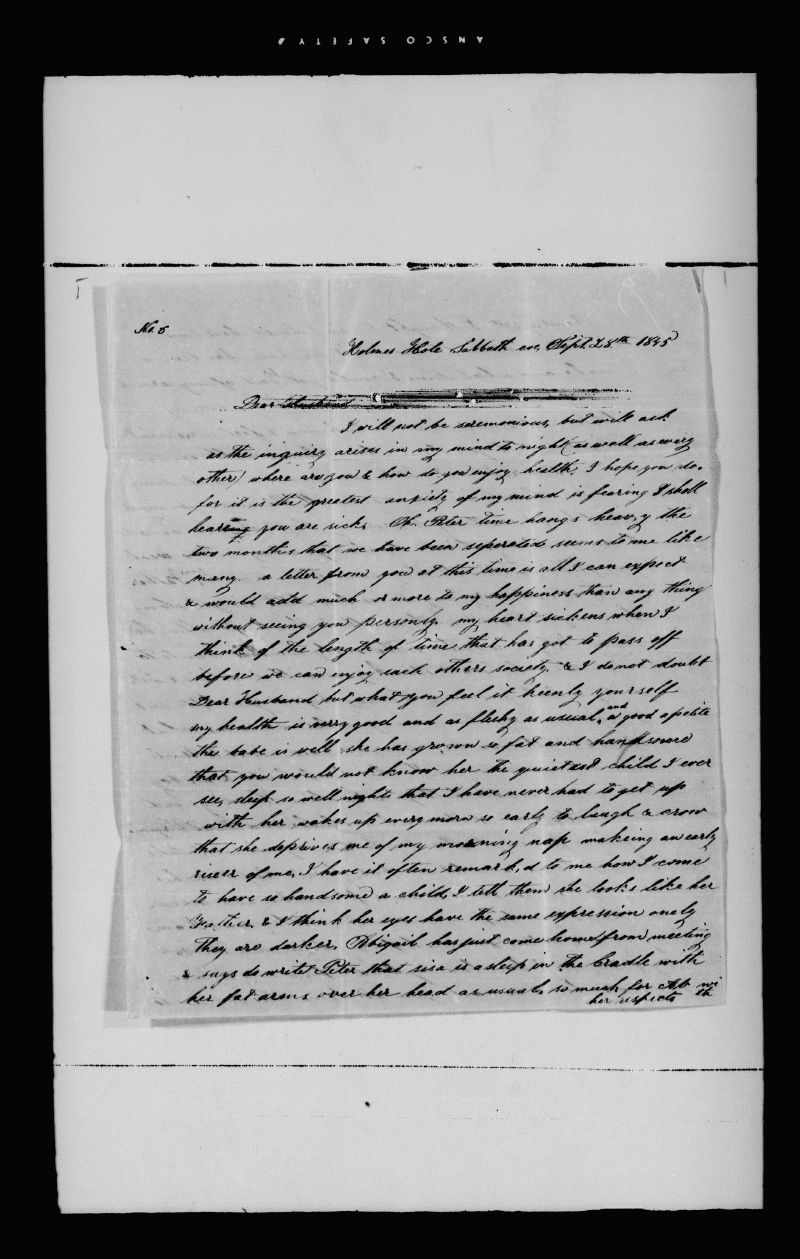 ANSCO SAFETY
No. 5
Holmes Hole Sabbath eve, Sept. 28th 1845
Dear Husband
I will not be seremonious, but will ask
as the inquiry arises in my mind to night (as well as every
other) where are you & how do you enjoy health, I hope you do.
for it is the greatest anxiety of my mind is fearing I shall
hearing you are sick, Oh. Peter time hangs heavy the
two months that we have been seperated seems to me like
many. a letter from you at this time is all I can expect
& would add much or more to my happiness than any thing
without seeing you personly. my heart sickens when I
think of the length of time that has got to pass off
before we can injoy each others society, & I do not doubt
Dear Husband but what you feel it keenly yourself
my health is verry good and as fleshy as usual, and a good apetite
the babe is well she has grown so fat and handsome
that you would not know her the quietest child I ever
see, sleep so well nights that I have never had to get up
with her wakes up every morn so early to laugh & crow
that she deprives me of my morning nap makeing an early
riser of me, I have it often remark,d to me how I come
to have so handsome a child, I tell them she looks like her
Father, & I think her eyes have the same expression onely
they are darker, Abigail has just come home from meeting
& says do write Peter that sisa is asleep in the Cradle with
her fat arms over her head as usual, so much for Ab with
her uspects